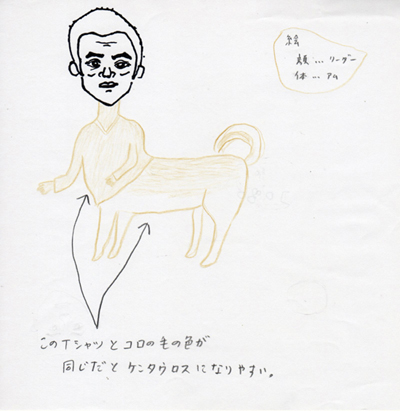 絵
顔…リーダー
体…アム
このTシャツとコロの毛の色が
同じだとケンタウロスになりやすい。